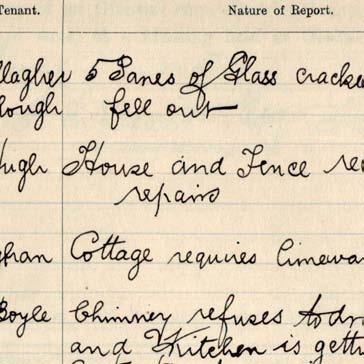 Tenant. Nature of Report.
llagher 5 Panes of Glass cracke
lough fell out
ugh House and Fence re
repairs
ghan Cottage requires limewa
Boyle Chimney refuses to dr
and Kitchen is gett